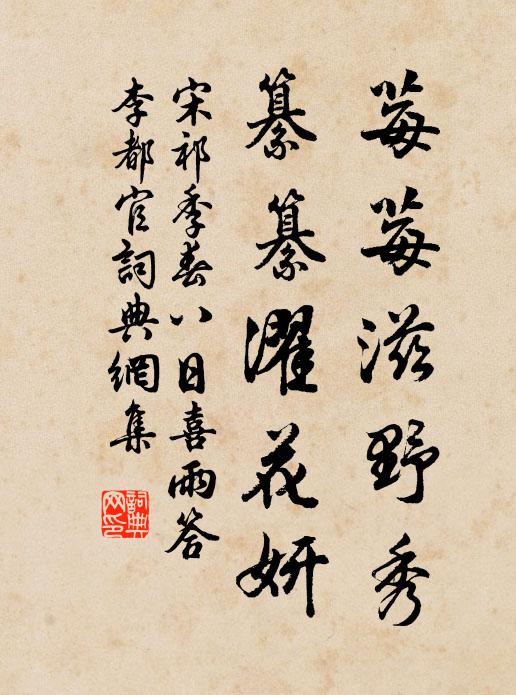 莓莓滋野秀
纂纂濯花妍
宋祁季春八日喜雨答
李都官詞典網集
詞典
网印